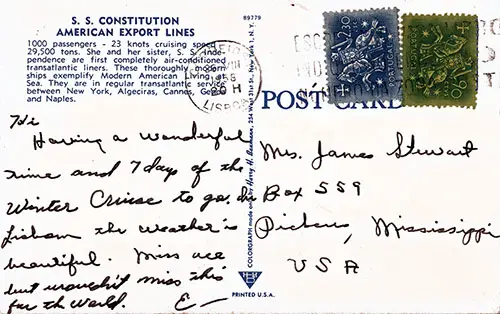 S. S. CONSTITUTION
AMERICAN EXPORT LINES
1000 passengers - 23 knots cruising speed
29,500 tons. She and her sister, S. S. Inde-
pendence are first completely air-conditioned
transatlantic liners. These thoroughly modern
ships exemplify Modern American Living at
Sea. They are in regular transatlantic service
between New York, Algeciras, Cannes, Genoa
and Naples.
Hi
Having a wonderful
time and 7 days of the
Winter Cruise to go. In
Lisbon the weather is
beautiful. Miss all
but wouldn't miss this
for the world. E—
89779
COLORGRAPH made by Harry H. Baumann, 254 West 31st St. New York 1, N.Y.
PRINTED U.S.A.
LISBOA
POST CARD
2$30
PORTUGAL
Mrs. James Stewart
Box 559
Pickens, Mississippi
USA